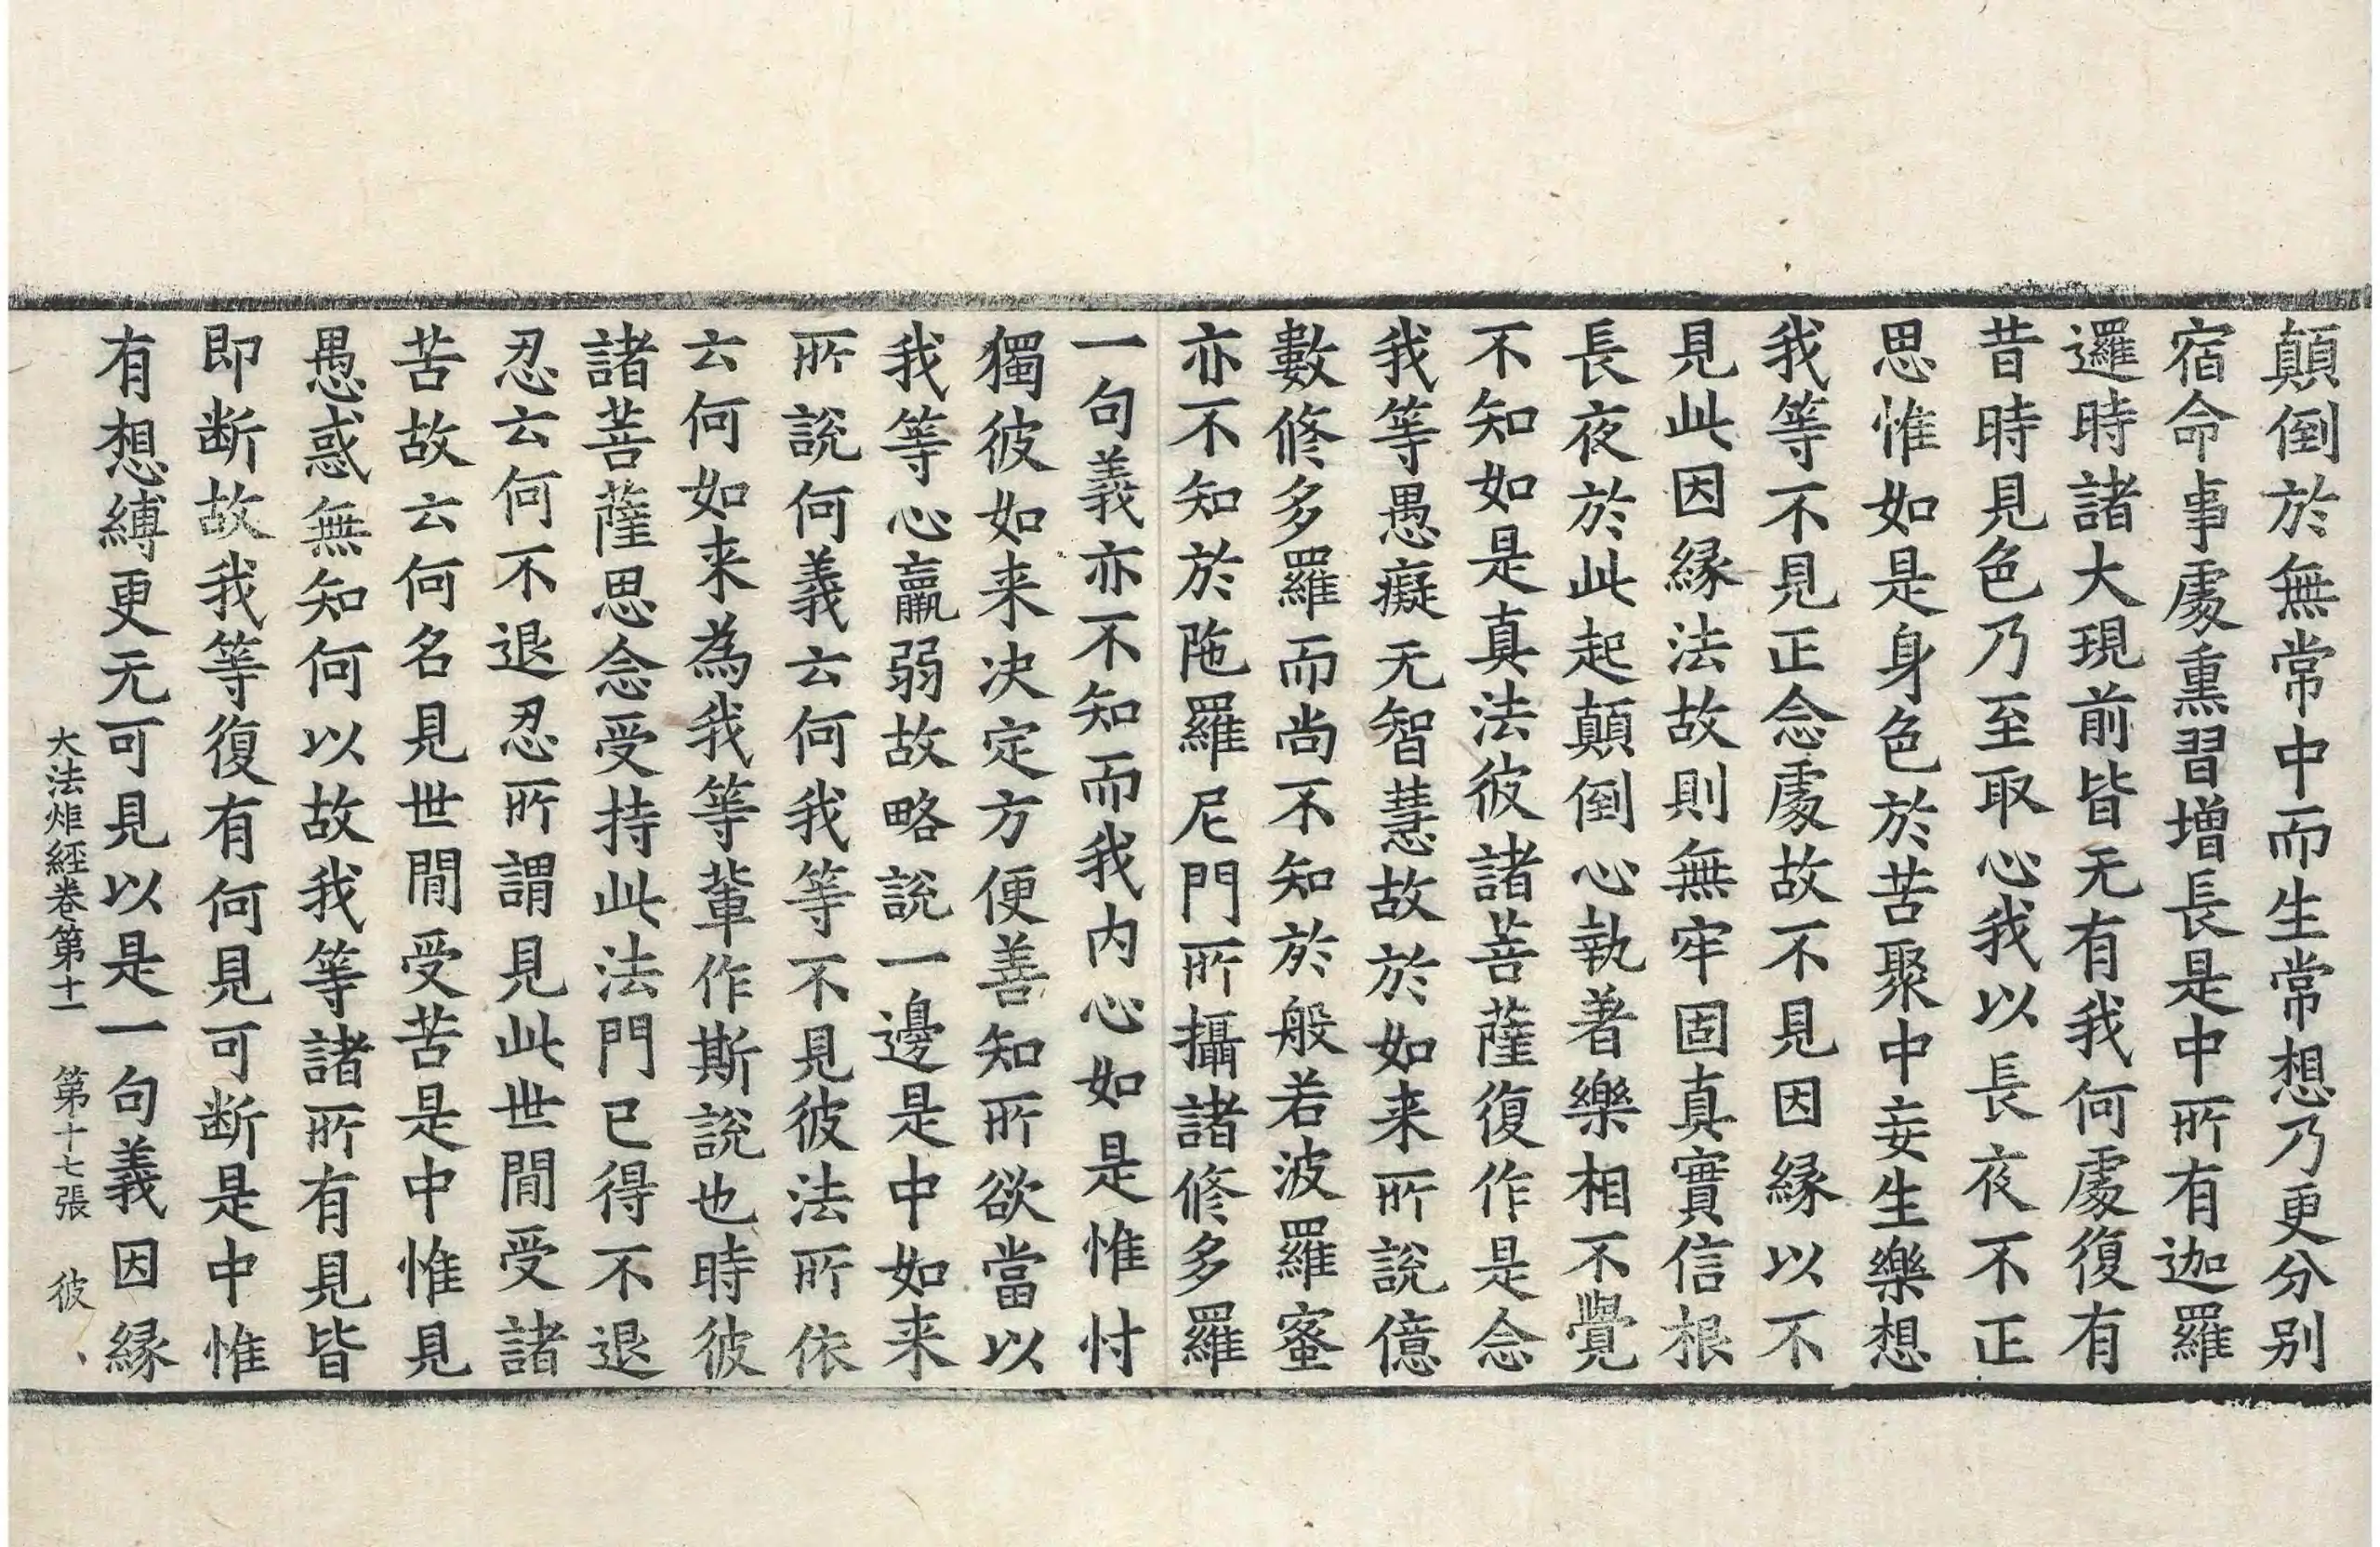 顛倒於無常中而生常想乃更分别
宿命事處熏習增長是中所有迦羅
邏時諸大現前皆无有我何處復有
昔時見色乃至取心我以長夜不正
思惟如是身色於苦聚中妄生樂想
我等不見正念處故不見因縁以不
見此因縁法故則無牢固真實信根
長夜於此起顛倒心執著樂相不覺
不知如是真法彼諸菩薩復作是念
我等愚癡无智慧故於如来所說億
數修多羅而尚不知於般若波羅蜜
亦不知於陁羅尼門所攝諸修多羅
一句義亦不知而我内心如是惟忖
獨彼如来决定方便善知所欲當以
我等心羸弱故略說一邊是中如来
所說何義云何我等不見彼法所依
云何如来為我等輩作斯說也時彼
諸菩薩思念受持此法門已得不退
忍云何不退忍所謂見此世間受諸
苦故云何名見世間受苦是中惟見
愚惑無知何以故我等諸所有見皆
即断故我等復有何見可断是中惟
有想縛更无可見以是一句義因縁
大法炬經卷第十一 第十七張 彼